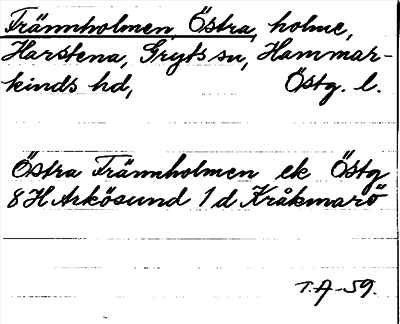 Främnholmen, Östra, holme,
Harstena, Gryts sn, Hammar-
kinds hd, Östg. l.
Östra Främnholmen ek Östg
8H Arkösund 1d Kråkmarö
T.A-59.